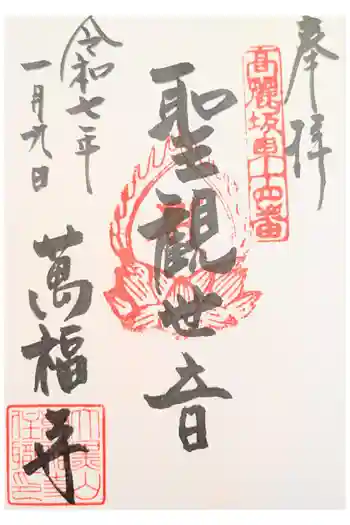 奉拝
高麗坂東十四番
聖観世音
令和七年
一月九日
萬福寺